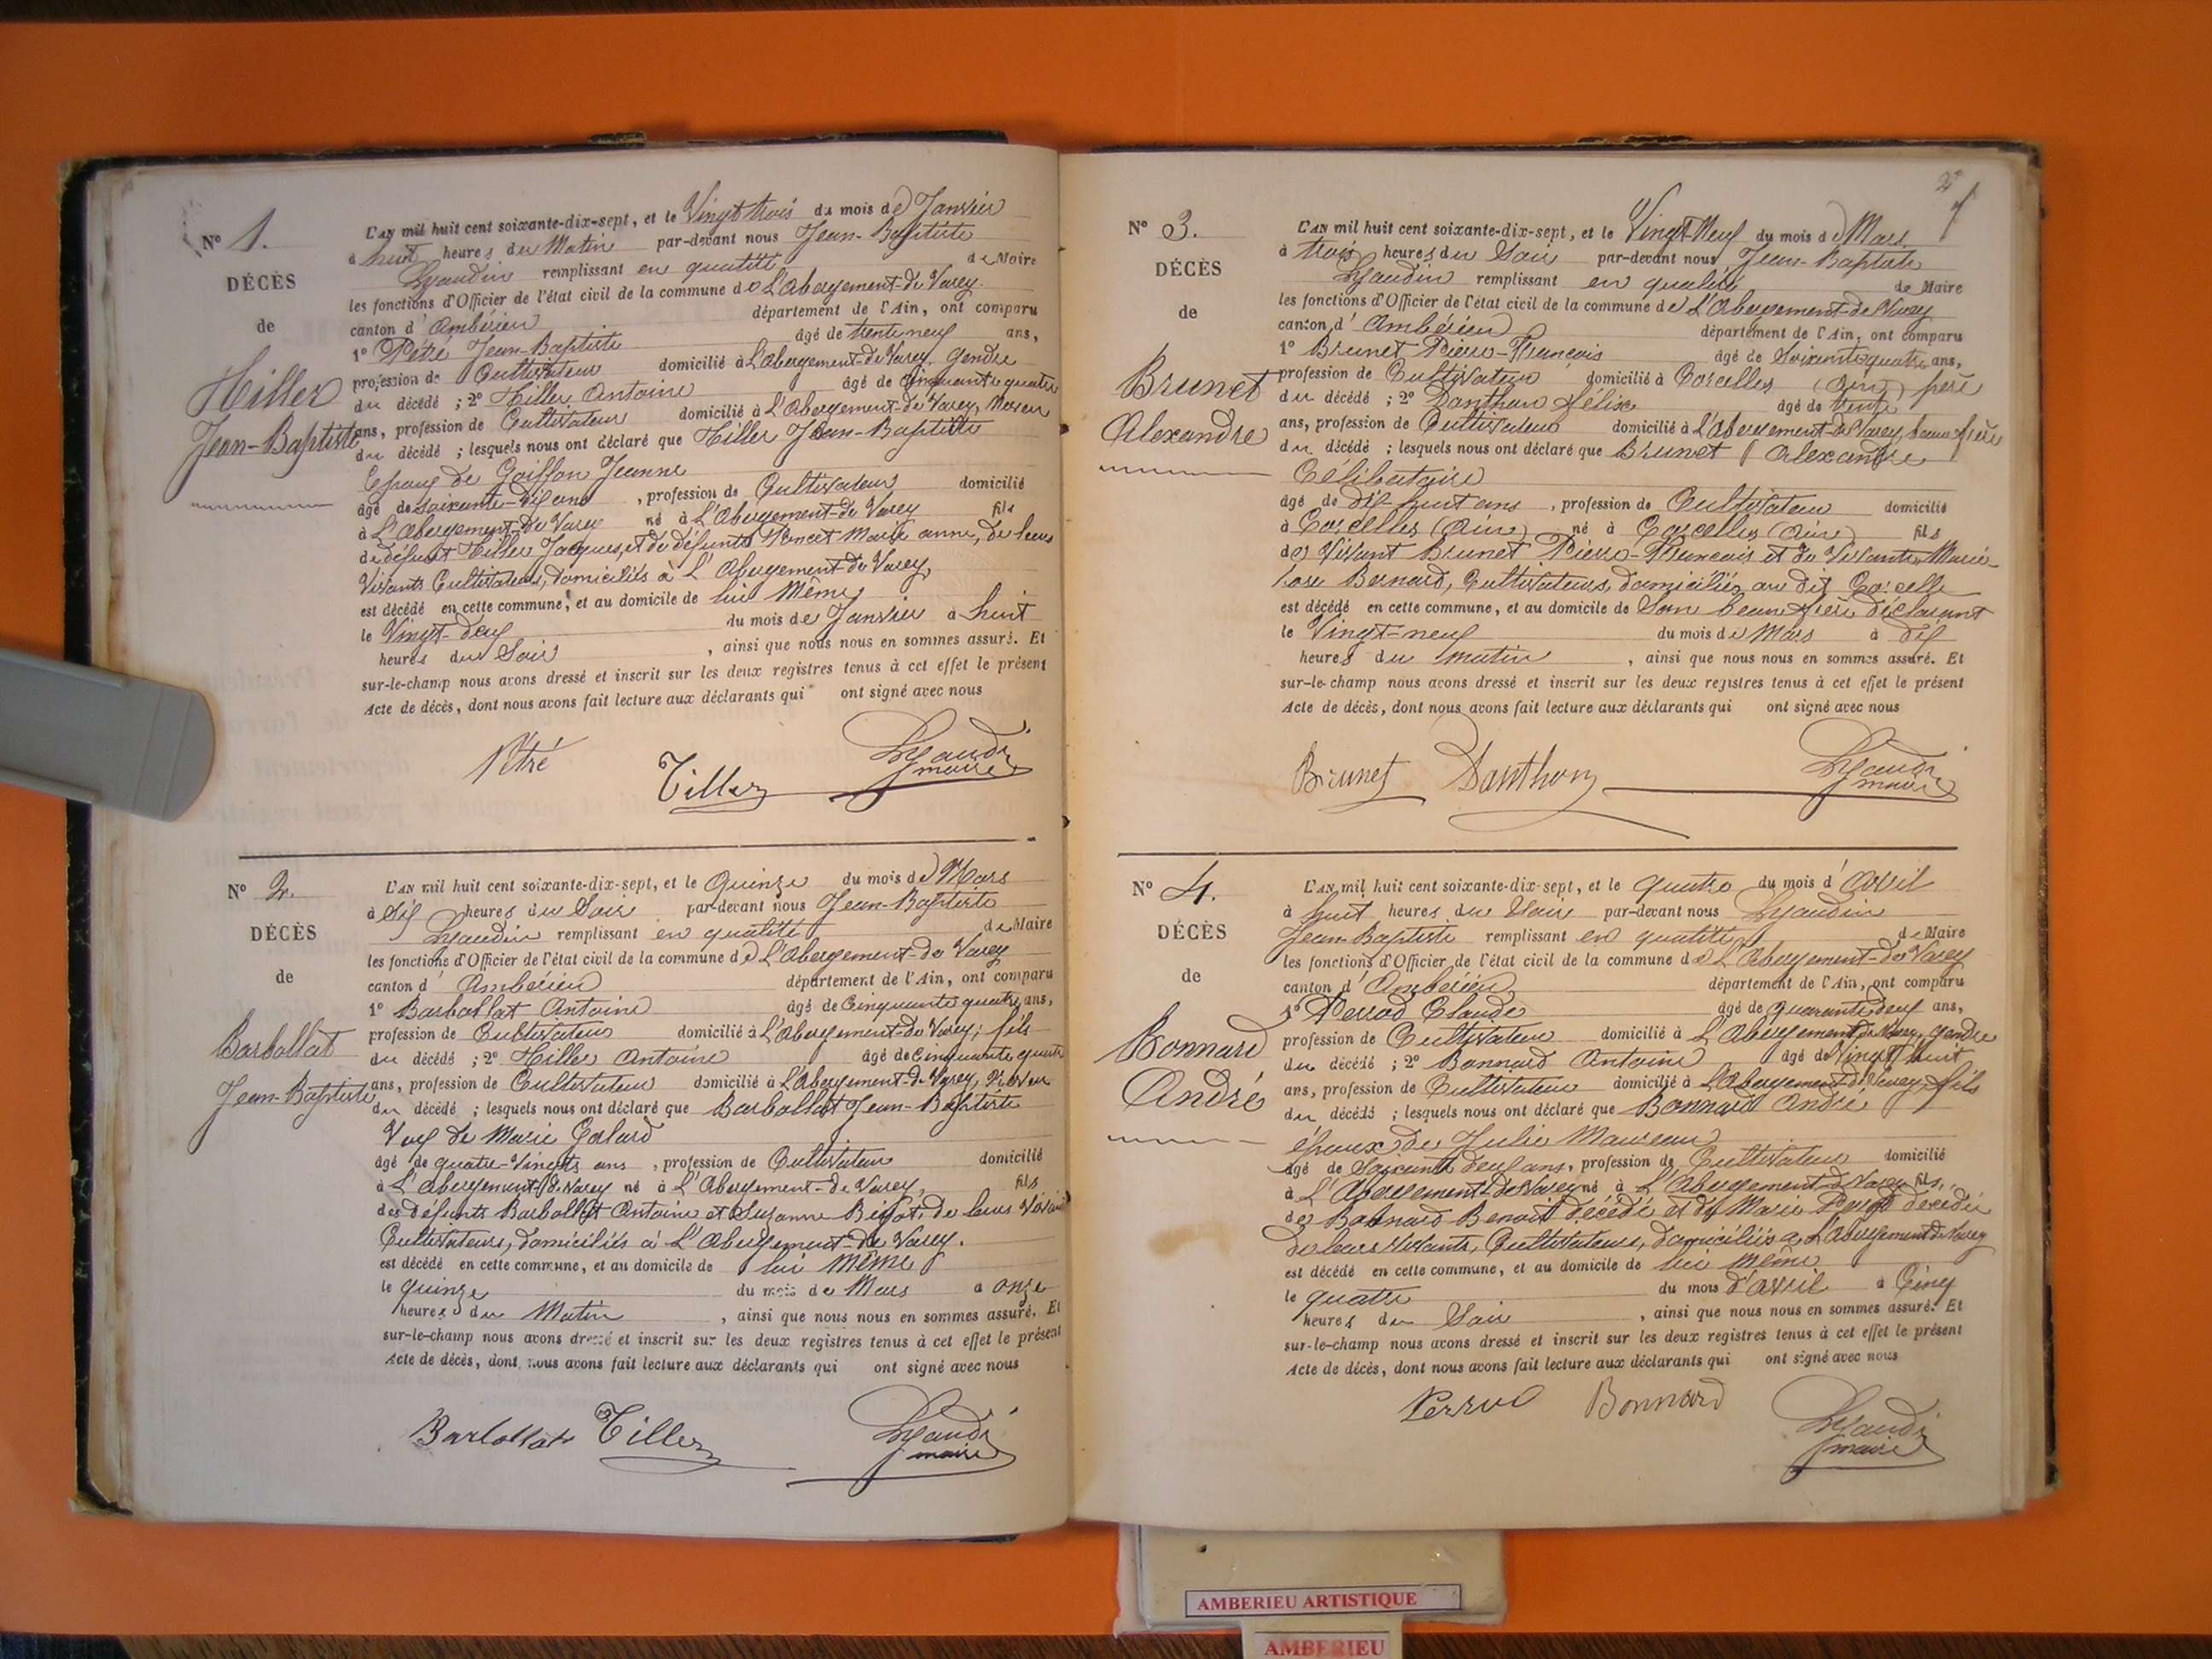 N° 1.
DÉCÈS
de
Tiller
Jean-Baptiste
L'AN mil huit cent soixante-dix-sept, et le Vingt trois du mois de Janvier
à huit heures du Matin par-devant nous Jean-Baptiste
Lyaudin remplissant en qualité de Maire
les fonctions d'Officier de l'état civil de la commune de L'Abergement-de Varey.
canton d'Ambérieu département de l'Ain, ont comparu
1° Pétré Jean-Baptiste âgé de trente neuf ans,
profession de Cultivateur domicilié à L'abergement-de Varey, gendre
du décédé ; 2° Tiller Antoine âgé de Cinquante quatre
ans, profession de Cultivateur domicilié à L'Abergement-de Varey, Neveu
du décédé ; lesquels nous ont déclaré que Tiller Jean-Baptiste
Epoux de Goiffon Jeanne
âgé de soixante-dix ans , profession de Cultivateur domicilié
à L'Abergement-de Varey né à L'Abergement-de Varey fils
de défunt Tiller Jacques, et de défunte Poncet Marie anne, de leurs
Vivants Cultivateurs, domiciliés à L'Abergement-de Varey,
est décédé en cette commune, et au domicile de lui Même
le Vingt-deux du mois de Janvier à huit
heures du Soir , ainsi que nous nous en sommes assuré. Et
sur-le-champ nous avons dressé et inscrit sur les deux registres tenus à cet effet le présent
Acte de décès, dont nous avons fait lecture aux déclarants qui ont signé avec nous
Pétré Tiller Lyaudin
maire
N° 2.
DÉCÈS
de
Barbollat
Jean-Baptiste
L'AN mil huit cent soixante-dix-sept, et le Quinze du mois de Mars
à Six heures du Soir par-devant nous Jean-Baptiste
Lyaudin remplissant en qualité de Maire
les fonctions d'Officier de l'état civil de la commune de L'Abergement-de Varey
canton d'Ambérieu département de l'Ain, ont comparu
1° Barbollat Antoine âgé de Cinquante quatre ans,
profession de Cultivateur domicilié à L'Abergement-de Varey, fils
du décédé ; 2° Tiller Antoine âgé de Cinquante quatre
ans, profession de Cultivateur domicilié à L'Abergement-de Varey, Neveu
du décédé ; lesquels nous ont déclaré que Barbollat Jean-Baptiste
Veuf de Marie
âgé de quatre-Vingts ans , profession de Cultivateur domicilié
à L'abergement de Varey né à L'Abergement-de Varey, fils
des défunts Barbollat Antoine et Suzanne de leurs Vivants
Cultivateurs, domiciliés à L'Abergement-de Varey.
est décédé en cette commune, et au domicile de lui Même
le quinze du mois de Mars à onze
heures du Matin , ainsi que nous nous en sommes assuré. Et
sur-le-champ nous avons dressé et inscrit sur les deux registres tenus à cet effet le présent
Acte de décès, dont nous avons fait lecture aux déclarants qui ont signé avec nous
Barbollat Tiller Lyaudin
maire
2
N° 3.
DÉCÈS
de
Brunet
Alexandre
L'AN mil huit cent soixante-dix-sept, et le Vingt-Neuf du mois de Mars
à trois heures du Soir par-devant nous Jean-Baptiste
Lyaudin remplissant en qualité de Maire
les fonctions d'Officier de l'état civil de la commune de L'Abergement-de Varey
canton d'Ambérieu département de l'Ain, ont comparu
1° Brunet Pierre-François âgé de Soixante quatre ans,
profession de Cultivateur domicilié à Corcelles (Ain) père
du décédé ; 2° Danthon Félix âgé de trente
ans, profession de Cultivateur domicilié à L'Abergement-de Varey, beau frère
du décédé ; lesquels nous ont déclaré que Brunet Alexandre
Célibataire
âgé de dix-huit ans , profession de Cultivateur domicilié
à Corcelles (Ain) né à Corcelles (Ain) fils
de Vivant Brunet Pierre-François et de Vivante Marie
Bernard, Cultivateurs, domiciliés au dit Corcelle
est décédé en cette commune, et au domicile de Son beau frère déclarant
le Vingt-neuf du mois de Mars à dix
heures du matin , ainsi que nous nous en sommes assuré. Et
sur-le-champ nous avons dressé et inscrit sur les deux registres tenus à cet effet le présent
Acte de décès, dont nous avons fait lecture aux déclarants qui ont signé avec nous
Brunet Danthon Lyaudin
maire
N° 4.
DÉCÈS
de
Bonnard
André
L'AN mil huit cent soixante-dix-sept, et le quatre du mois d'Avril
à huit heures du Soir par-devant nous Lyaudin
Jean-Baptiste remplissant en qualité de Maire
les fonctions d'Officier de l'état civil de la commune de L'Abergement-de Varey
canton d'Ambérieu département de l'Ain, ont comparu
1° Perrod Claude âgé de quarante deux ans,
profession de Cultivateur domicilié à L'Abergement de Varey, gendre
du décédé ; 2° Bonnard Antoine âgé de Vingt huit
ans, profession de Cultivateur domicilié à L'Abergement de Varey, fils
du décédé ; lesquels nous ont déclaré que Bonnard André
époux de Julie
âgé de Soixante deux ans, profession de Cultivateur domicilié
à L'Abergement de Varey né à L'Abergement de Varey fils,
de Bonnard Benoit décédé et de Marie décédée
de leurs Vivants, Cultivateurs, domiciliés à L'Abergement de Varey
est décédé en cette commune, et au domicile de lui même
le quatre du mois d'avril à Cinq
heures du Soir , ainsi que nous nous en sommes assuré. Et
sur-le-champ nous avons dressé et inscrit sur les deux registres tenus à cet effet le présent
Acte de décès, dont nous avons fait lecture aux déclarants qui ont signé avec nous
Perrod Bonnard Lyaudin
maire
AMBERIEU ARTISTIQUE
AMBERIEU